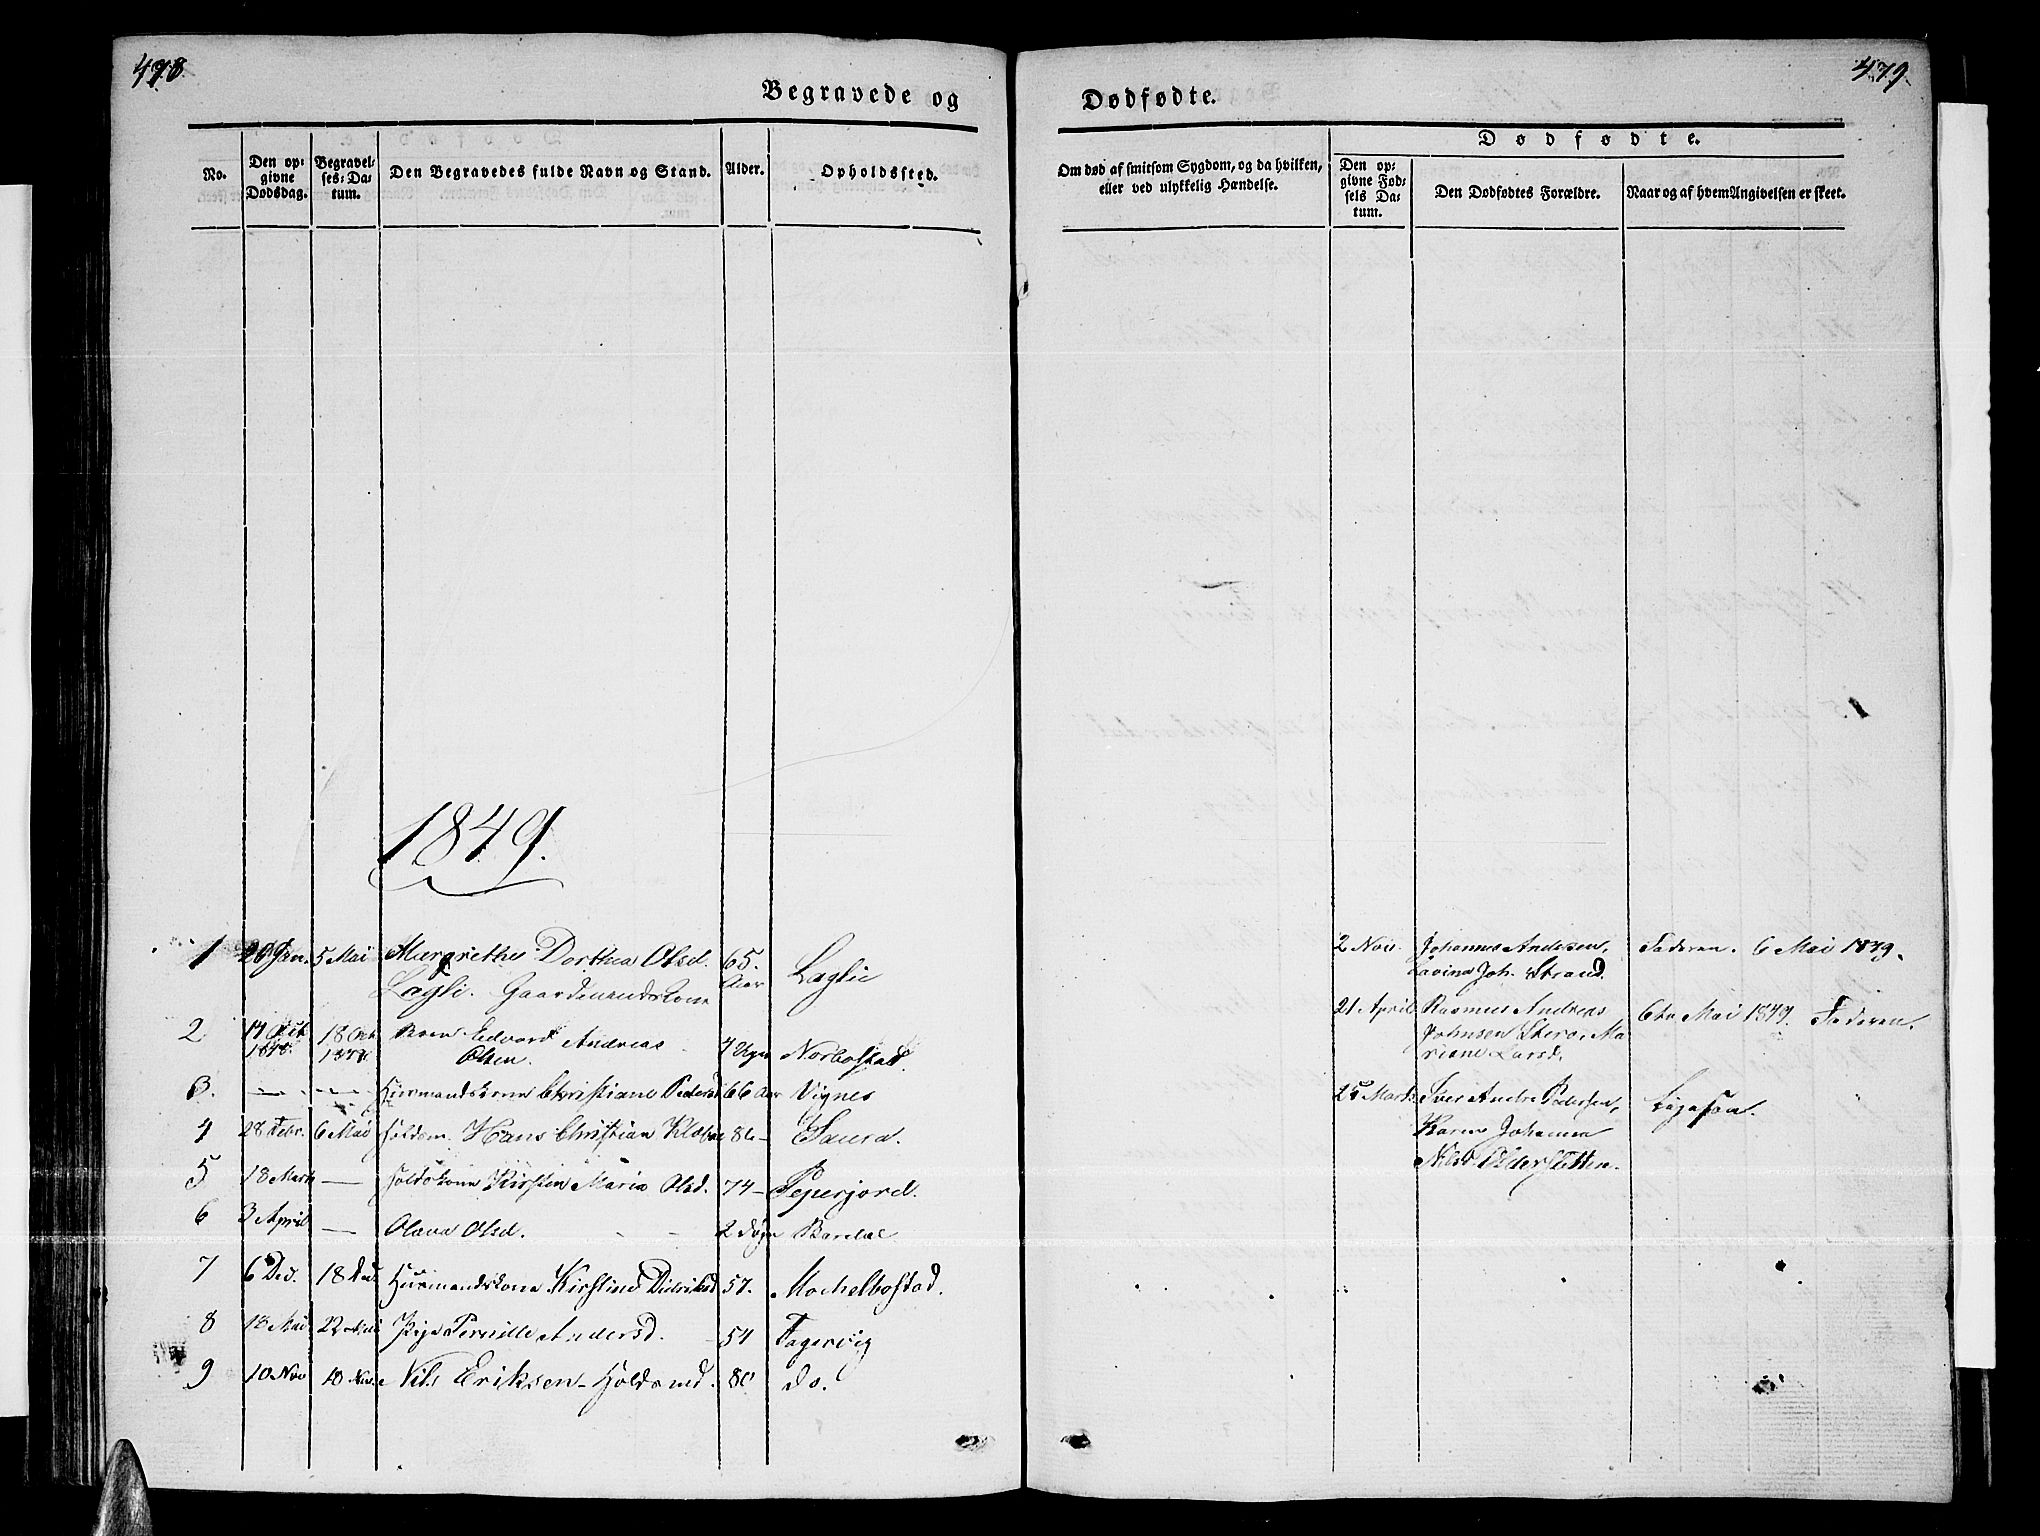 478.
479.
Begravede og
Dødfødte.
No.
Den op-
givne
Dødsdag.
Begravel-
ses-Da-
tum.
Den Begravedes fulde Navn og Stand.
Alder.
Opholdssted.
Om død af smitsom Sygdom, og da hvilken,
eller ved ulykkelig Hændelse.
Dødfødte.
Den op-
givne Fød-
sels Da-
tum.
Den Dødfødtes Forældre.
Naar og af hvem Angivelsen er skeet.
1849.
1 20 Jan. 5 Mai Margrethe Dorthea Olsd. 65. Laglie
Lægli. Gaardmandskone Aar
2 18 Oct. Barn Edvard Andreas
1848. Olsen. Norbostad.
3. Huusmandskone Christiane Pedersd 66 Aar Vignes
4 28 Febr. 6 Mai Hans Christian Saura.
5 18 Marts — Kirsten Maria Olsd. 74 – Peperjord.
6 3 April — Olava Olsd. 2 Døgn Bardal
7 6 Dec. 18 Dec. Huusmandskone Kirstine Didriksd 57.
8 18 Mai 22 Mai Pige Pernille Andersd. 54 Fagervig
9 10 Nov Nils Eriksen – 80 do.
2 Nov. Johannes Andersen, Faderen. 6 Mai 1849.
Lavina Joh. Strand.
21 April Rasmus Andreas 6te Mai 1849. Faderen.
Johnsen Ma
riane Larsd.
25 Marts Iver Andr. Pedersen, Ligesaa.
Karen Johanna